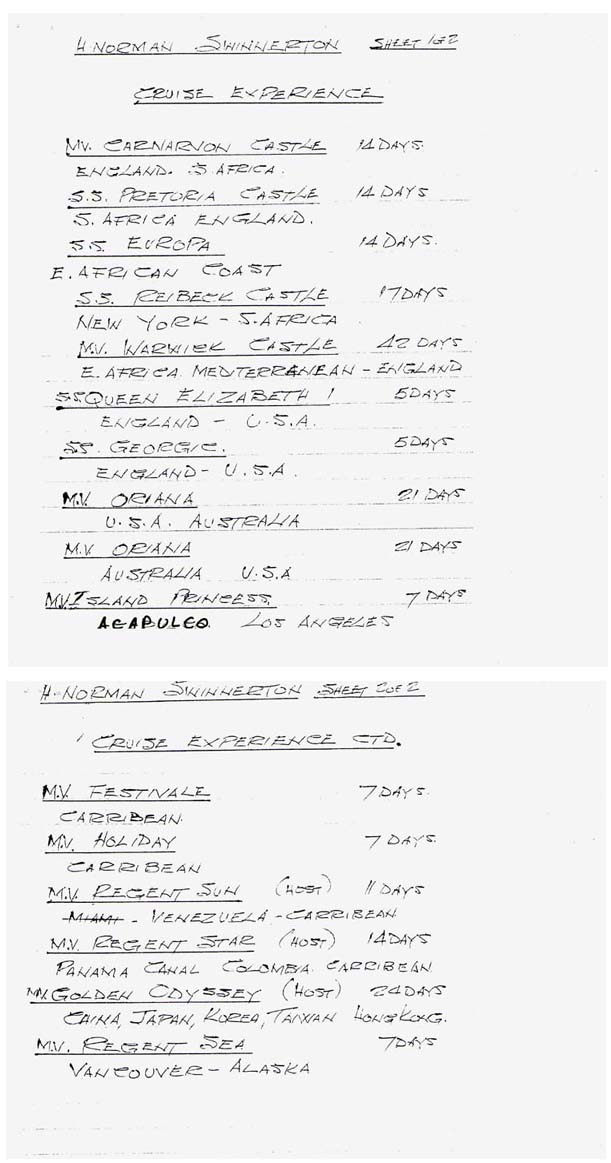 H. NORMAN SWINNERTON SHEET 1 OF 2
CRUISE EXPERIENCE
MV. CARNARVON CASTLE 14 DAYS.
ENGLAND. S. AFRICA.
S.S. PRETORIA CASTLE 14 DAYS
S. AFRICA ENGLAND.
S.S. EUROPA 14 DAYS.
E. AFRICAN COAST
S.S. REIBECK CASTLE 17 DAYS
NEW YORK - S. AFRICA
MV. WARWICK CASTLE 42 DAYS
E. AFRICA MEDITERRANEAN - ENGLAND
SS QUEEN ELIZABETH 1 5 DAYS
ENGLAND - U.S.A.
SS. GEORGIC. 5 DAYS
ENGLAND - U.S.A.
M.V. ORIANA 21 DAYS
U.S.A. AUSTRALIA
M.V. ORIANA 21 DAYS
AUSTRALIA U.S.A
M.V. ISLAND PRINCESS 7 DAYS
ACAPULCO LOS ANGELES
H. NORMAN SWINNERTON SHEET 2 OF 2
CRUISE EXPERIENCE CTD.
M.V. FESTIVALE 7 DAYS.
CARRIBEAN.
MV. HOLIDAY 7 DAYS.
CARRIBEAN
M.V. REGENT SUN (HOST) 11 DAYS
MIAMI - VENEZUELA - CARRIBEAN
M.V. REGENT STAR (HOST) 14 DAYS
PANAMA CANAL COLOMBIA CARRIBEAN
MV. GOLDEN ODYSSEY (HOST) 24 DAYS
CHINA, JAPAN, KOREA, TAIWAN HONG KONG.
M.V. REGENT SEA 7 DAYS
VANCOUVER - ALASKA